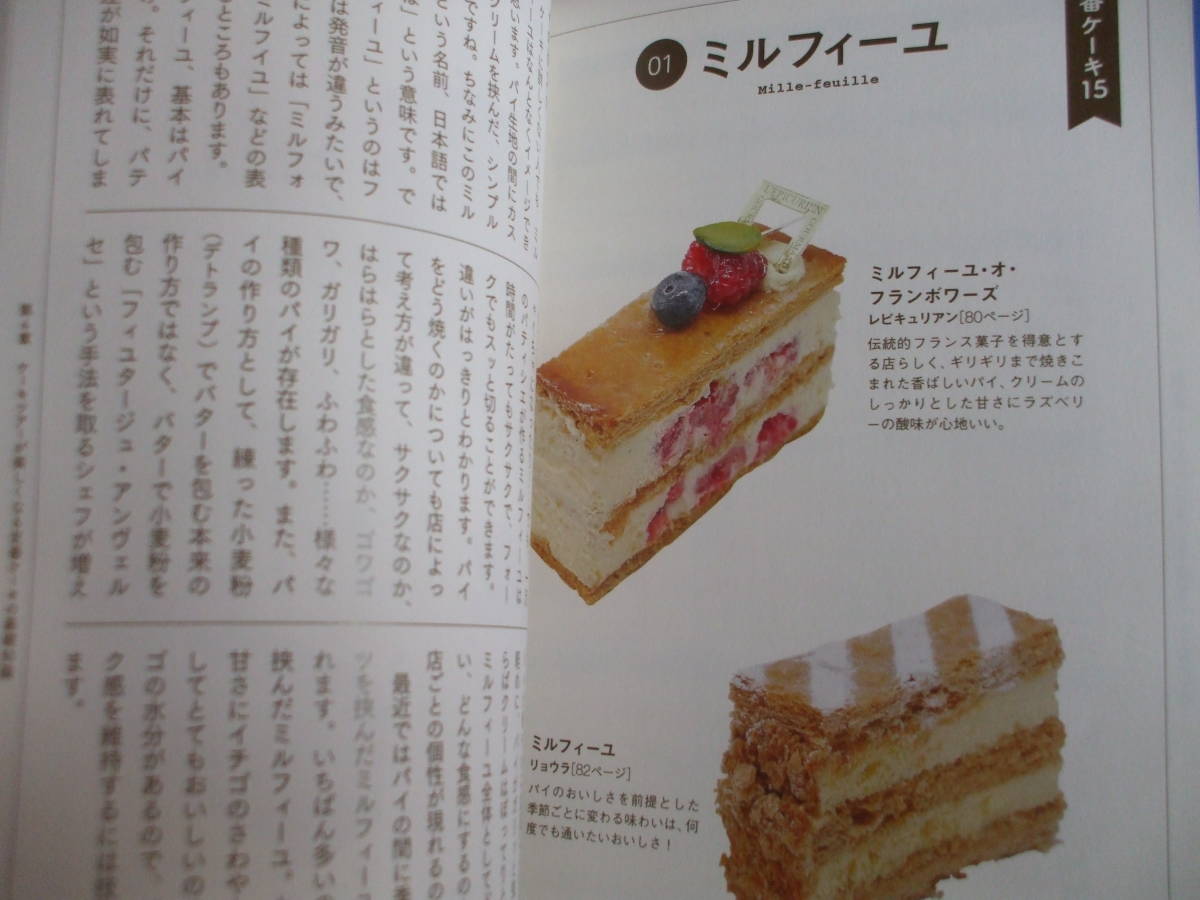 番ケーキ15
01 ミルフィーユ
Mille-feuille
L'EPICURIEN
ミルフィーユ・オ・
フランボワーズ
レピキュリアン[80ページ]
伝統的フランス菓子を得意とす
る店らしく、ギリギリまで焼きこ
まれた香ばしいパイ、クリームの
しっかりとした甘さにラズベリ
ーの酸味が心地いい。
ミルフィーユ
リョウラ[82ページ]
パイのおいしさを前提とした
季節ごとに変わる味わいは、何
度でも通いたいおいしさ！
思います。パイ生地の間にカス
クリームを挟んだ、シンプル
ですね。ちなみにこのミル
という名前、日本語では
は」という意味です。で
ィーユ」というのはフ
は発音が違うみたいで、
によっては「ミルフォ
ミルフイユ」などの表
るところもあります。
。それだけに、パテ
ィーユ、基本はパイ
が如実に表れてしま
のパティシエが作るミルフィーユは
時間がたってもサクサクで、フォー
クでもスッと切ることができます。
違いがはっきりとわかります。パイ
をどう焼くのかについても店によっ
て考え方が違って、サクサクなのか、
はらはらとした食感なのか、ゴワゴ
ワ、ガリガリ、ふわふわ……様々な
種類のパイが存在します。また、パ
イの作り方として、練った小麦粉
（デトランプ）でバターを包む本来の
作り方ではなく、バターで小麦粉を
包む「フィユタージュ・アンヴェル
セ」という手法を取るシェフが増え
らばクリームはばっ
ミルフィーユ全体として
い、どんな食感にするの
店ごとの個性が現れるの
最近ではパイの間に季
ツを挟んだミルフィーユ
れます。いちばん多いの
挟んだミルフィーユ。
甘さにイチゴのさわや
してとてもおいしいの
ゴの水分があるので、
ク感を維持するには技
ます。